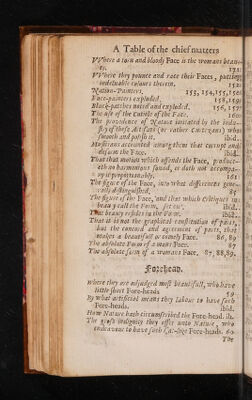 A Table of the chief matters
VVhere a torn and bloody Face is the womans beauty.
151
VVhere they pounce and race their Faces, putting indeleble colours therein.
152
Native-Painters. 153, 154, 155, 156
Face-painters exploded. 158, 159
Black-patches noted and exploded. 156, 157
The use of the Cuticle of the Face. 160
The providence of Nature imitated by the
smooth and polish it. ibid.
Histrions accounted among them that corrupt and
disturn the Face. ibid.
That that motion which offends the Face, produceth
an harmonious sound, or doth not accompany
it proportionably. 161
The figure of the Face, into what differences generally
distinguished. 85
The figure of the Face, and that which Critiques in
beauty call the Form, ibid.
That beauty resides in the Form. ibid.
That it is not the graphical constitution of parts,
but the concord and agreement of parts, that
makes a beautiful or comely Face. 86, 89
The absolute Form of a mans Face. 87
The absolute form of a womans Face. 87, 88, 89.
Forehead.
where they are adjudged most beautifull, who have
little short Fore-heads. 59
By what artificial means they labour to have such
Fore-heads. ibid.
How Nature hath circumscribed the Fore-head. ib.
The gross indignity they offer unto Nature, who
endeavour to have such Fore-heads
The